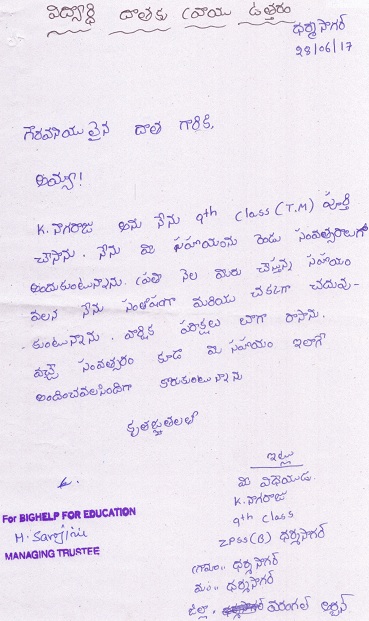 విద్యార్థి దాతకు వ్రాయు ఉత్తరం
ధర్మసాగర్
28/06/17
గౌరవనీయులైన దాత గారికి,
అయ్యా!
K. నాగరాజు అను నేను 9th class (T.M) పూర్తి
చేసాను. నేను మీ సహాయంను రెండు సంవత్సరాలుగా
అందుకుంటున్నాను. ప్రతి నెల మీరు చేస్తున్న సహాయం
వలన నేను సంతోషంగా మరియు చక్కగా చదువు-
కుంటున్నాను. వార్షిక పరీక్షలు బాగా రాసాను.
వచ్చే సంవత్సరం కూడ మీ సహాయం ఇలాగే
అందించవలసిందిగా కోరుకుంటున్నాను
కృతజ్ఞతలతో
ఇట్లు
మీ విధేయుడు.
K. నాగరాజు
9th class
ZPSS(B) ధర్మసాగర్
గ్రామం:. ధర్మసాగర్
మం:. ధర్మసాగర్
జిల్లా. వరంగల్ అర్బన్
For BIGHELP FOR EDUCATION
M. Sarojini
MANAGING TRUSTEE